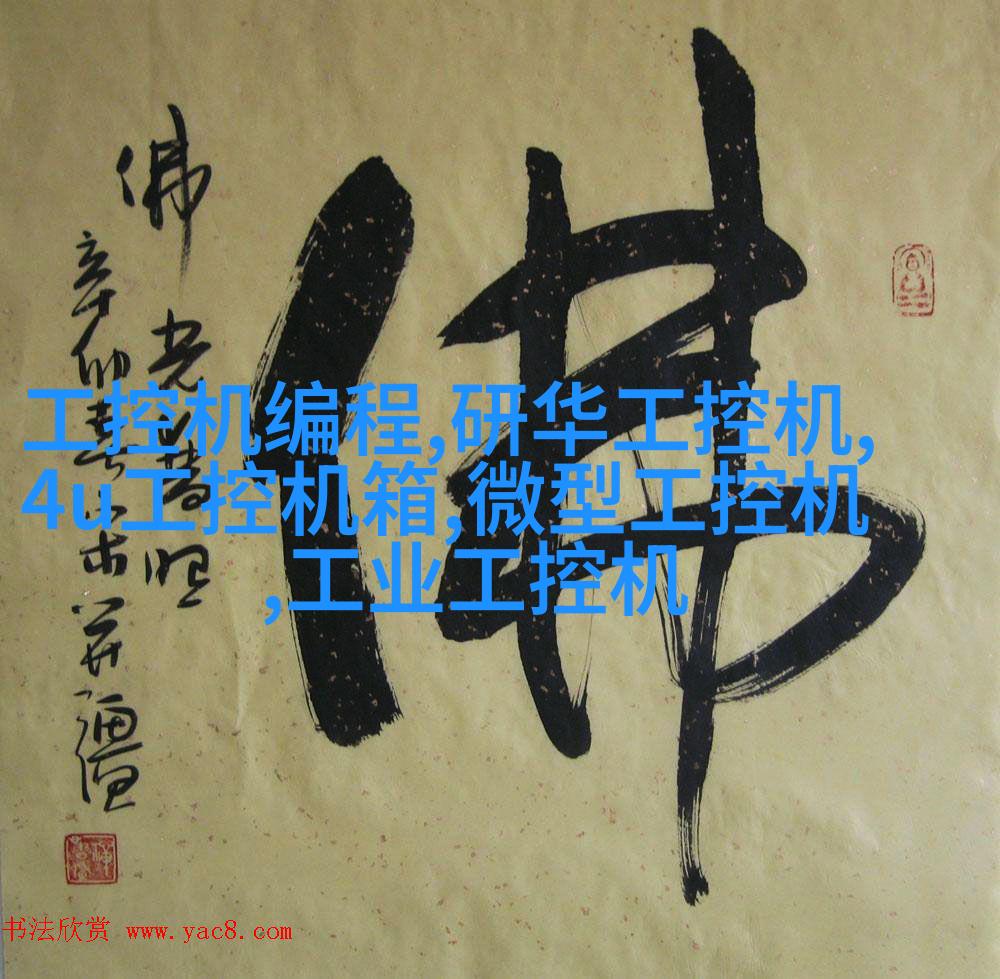 佛
佛光普照
辛卯春
工控机编程,研华工控机,
4u工控机箱,微型工控机
,工业工控机
书法欣赏 www.yac8.com